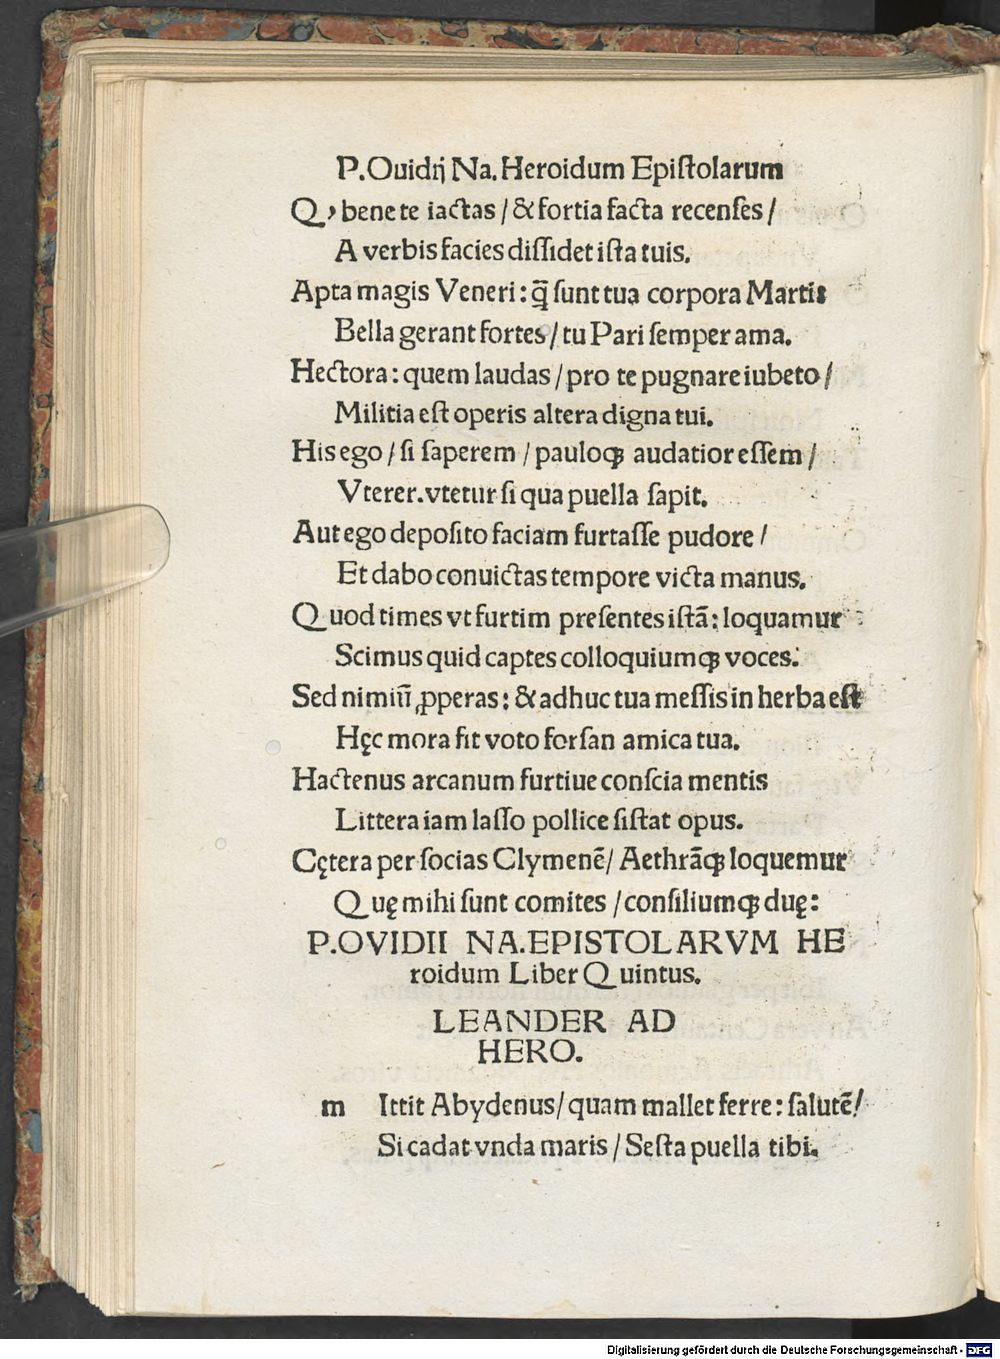 P.Ouidij Na. Heroidum Epiſtolarum
Qꝫ bene te iactas / & fortia facta recenſes /
A verbis facies diſſidet iſta tuis.
Apta magis Veneri: q̄ ſunt tua corpora Martis
Bella gerant fortes / tu Pari ſemper ama.
Hectora: quem laudas / pro te pugnare iubeto /
Militia eſt operis altera digna tui.
His ego / ſi ſaperem / pauloqꝫ audatior eſſem /
Vterer. vtetur ſi qua puella ſapit.
Aut ego depoſito faciam furtaſſe pudore /
Et dabo conuictas tempore victa manus.
Quod times vt furtim preſentes iſtā: loquamur
Scimus quid captes colloquiumqꝫ voces.
Sed nimiū ꝓperas: & adhuc tua meſſis in herba eſt
Hęc mora fit voto forſan amica tua.
Hactenus arcanum furtiue conſcia mentis
Littera iam laſſo pollice ſiſtat opus.
Cętera per ſocias Clymenē / Aethrāqꝫ loquemur
Quę mihi ſunt comites / conſiliumqꝫ duę:
P.OVIDII NA.EPISTOLARVM HE
roidum Liber Quintus.
LEANDER AD
HERO.
m Ittit Abydenus / quam mallet ferre: ſalutē /
Si cadat vnda maris / Seſta puella tibi.
Digitalisierung gefördert durch die Deutsche Forschungsgemeinschaft - DFG